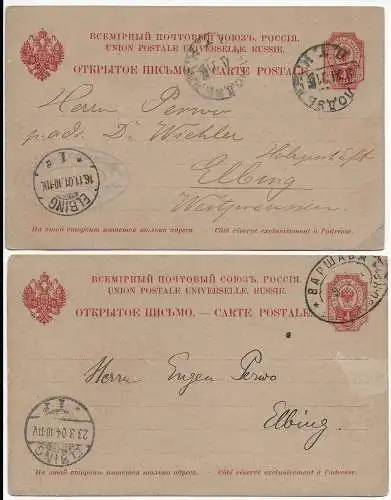 ВСЕМІРНЫЙ ПОЧТОВЫЙ СОЮЗЪ. РОССІЯ.
UNION POSTALE UNIVERSELLE. RUSSIE.
ОТКРЫТОЕ ПИСЬМО. — CARTE POSTALE.
Herrn Perwo
p. adr. D. Wiehler
Elbing
Westpreussen
ELBING
16.11.01.10-11V.
На этой сторонѣ пишется только адресъ. — Côté réservé exclusivement à l'adresse.
ВСЕМІРНЫЙ ПОЧТОВЫЙ СОЮЗЪ. РОССІЯ.
UNION POSTALE UNIVERSELLE. RUSSIE.
ОТКРЫТОЕ ПИСЬМО. — CARTE POSTALE.
ВАРШАВА
Herrn Eugen Perwo
Elbing.
ELBING
23.3.04.10-11V.
На этой сторонѣ пишется только адресъ. — Côté réservé exclusivement à l'adresse.